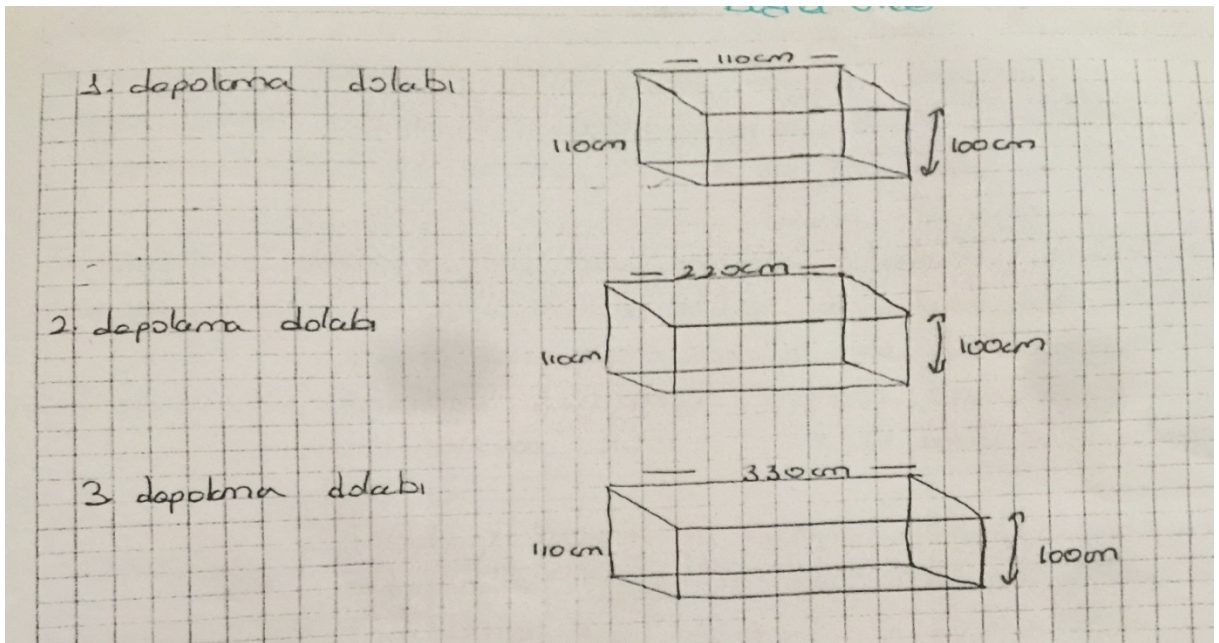 1. depolama dolabı
110cm
110cm
100cm
2. depolama dolabı
220cm
110cm
100cm
3 depolama dolabı
330cm
110cm
100cm